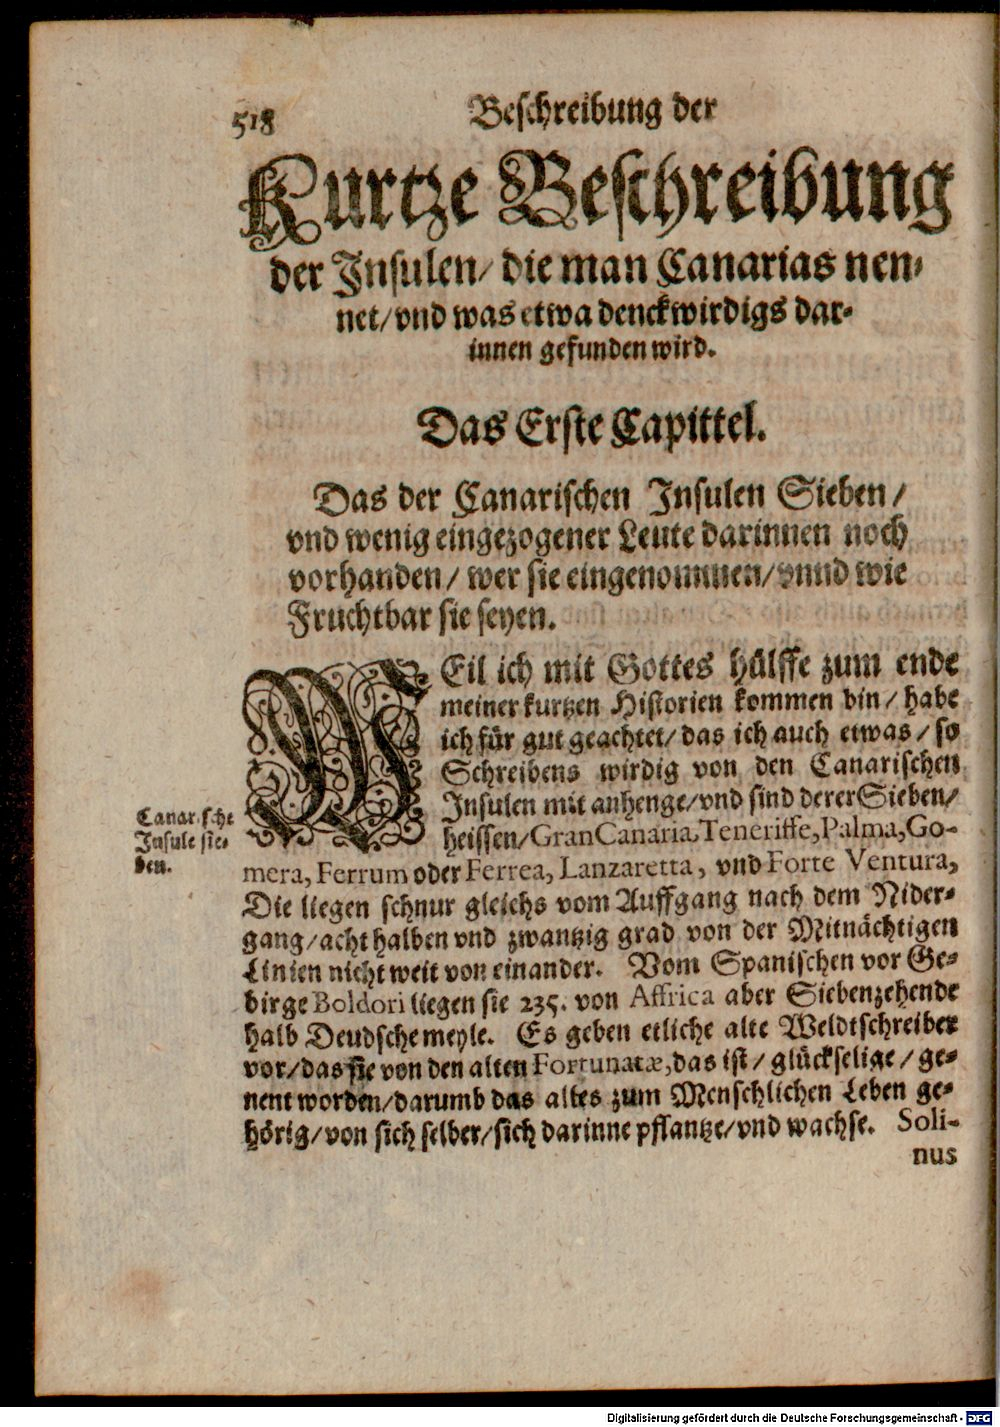 518
Beschreibung der
Kurtze Beschreibung
der Insulen/ die man Canarias nen-
net/vnd was etwa denckwirdigs dar-
innen gefunden wird.
Das Erste Capittel.
Das der Canarischen Insulen Sieben/
vnd wenig eingezogener Leute darinnen noch
vorhanden/ wer sie eingenommen/vnnd wie
Fruchtbar sie seyen.
WEil ich mit Gottes hülffe zum ende
meiner kurtzen Historien kommen bin/ habe
ich für gut geachtet/ das ich auch etwas/ so
Schreibens wirdig von den Canarischen
Insulen mit anhenge/vnd sind derer Sieben/
heissen/Gran Canaria, Teneriffe, Palma, Go-
Canarische
Insule sie-
ben.
mera, Ferrum oder Ferrea, Lanzaretta, vnd Forte Ventura,
Die liegen schnur gleichs vom Auffgang nach dem Nider-
gang/acht halben vnd zwantzig grad von der Mitnächtigen
Linien nicht weit von einander. Vom Spanischen vor Ge-
birge Boldori liegen sie 235. von Affrica aber Siebenzehende
halb Deudsche meyle. Es geben etliche alte Weldtschreiber
vor/das sie von den alten Fortunatæ, das ist/ glückselige/ ge-
nent worden/darumb das alles zum Menschlichen Leben ge-
hörig/von sich selber/sich darinne pflantze/vnd wachse. Soli-
nus
Digitalisierung gefördert durch die Deutsche Forschungsgemeinschaft - DFG